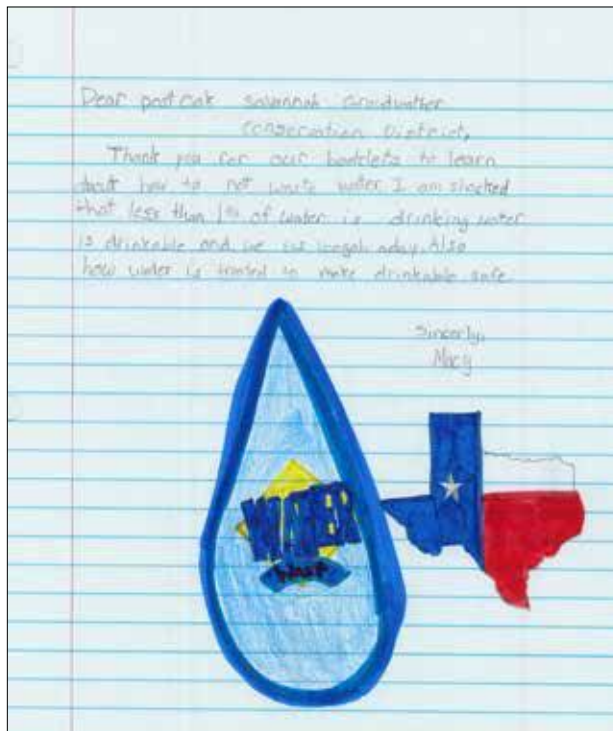 Dear post oak savannah Groudwather
conservation District,
Thank you for our booklets to learn
about how to not waste water. I am shocked
that less than 1% of water is drinking water
is drinkable and we use a day. Also
how water is treated to make drinkable safe
Sincerly,
Macy
WATER